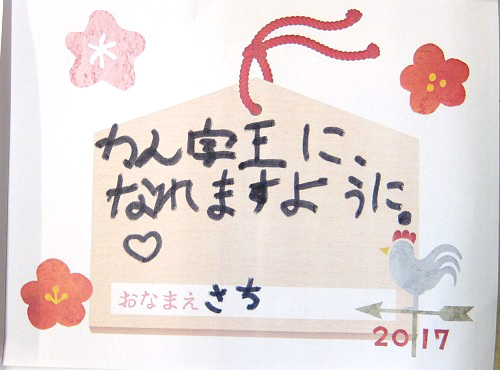 かん字王に、
なれますように。
♡
おなまえ さち
2017